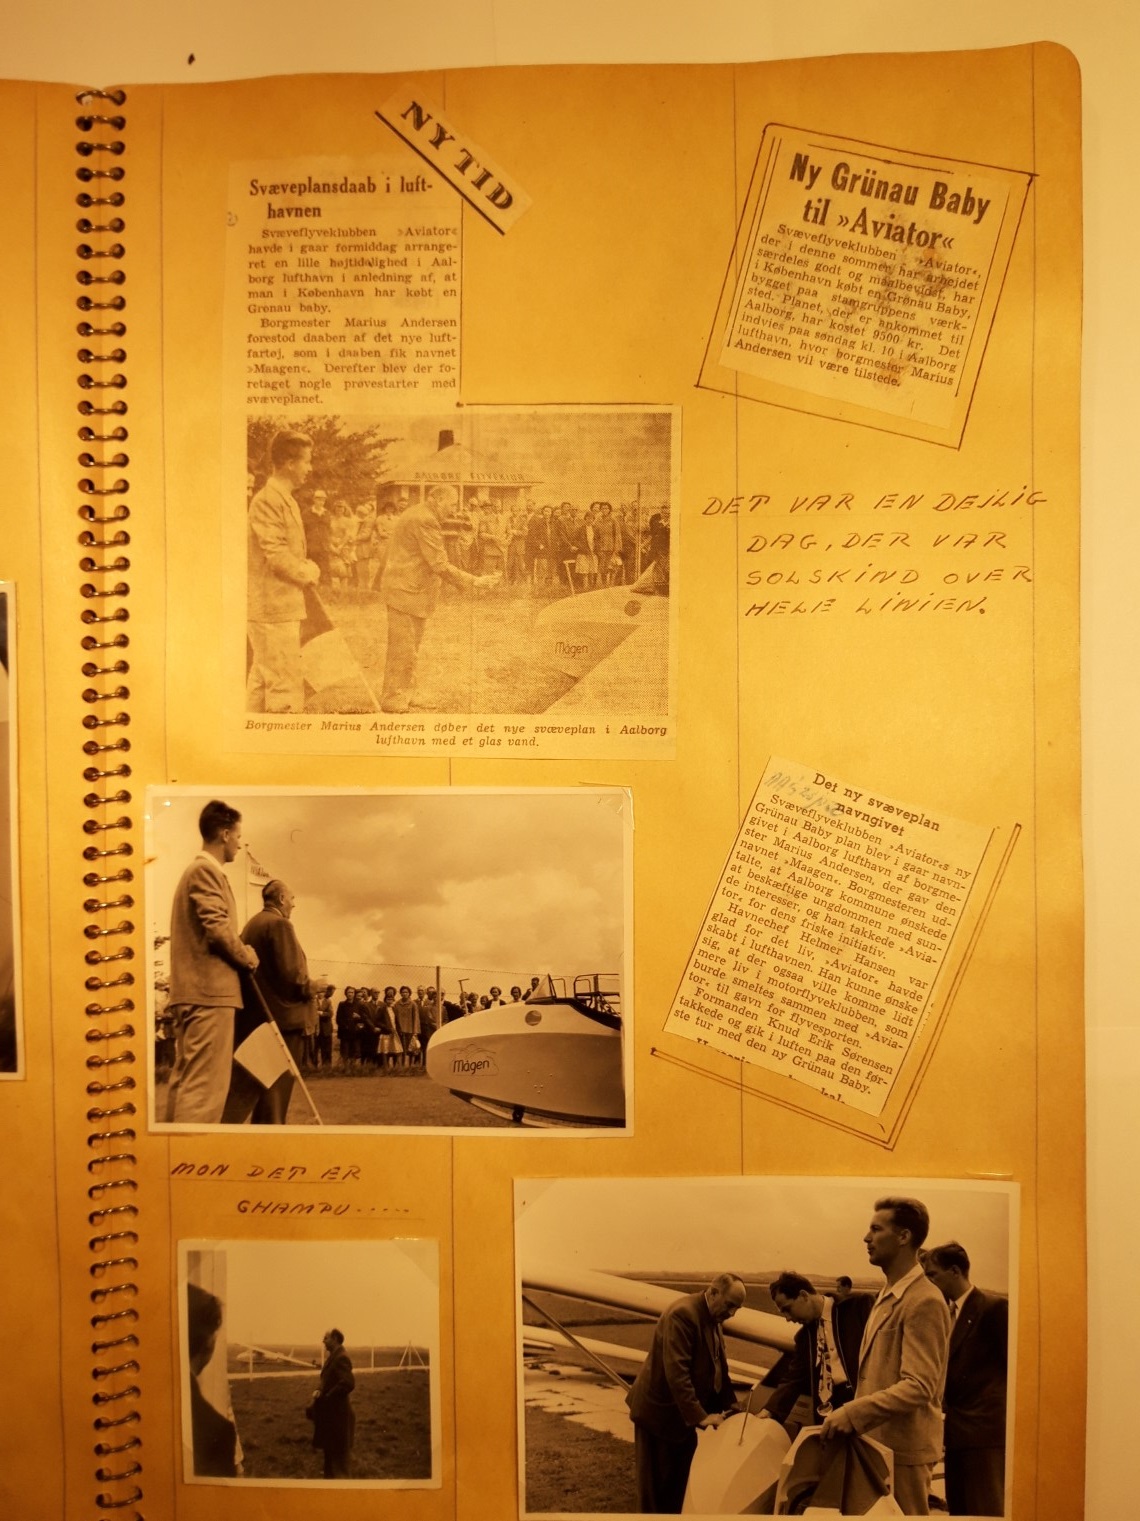 NY TID
Svæveplansdaab i luft-
havnen
Svæveflyveklubben »Aviator«
havde i gaar formiddag arrange-
ret en lille højtidelighed i Aal-
borg lufthavn i anledning af, at
man i København har købt en
Grønau baby.
Borgmester Marius Andersen
forestod daaben af det nye luft-
fartøj, som i daaben fik navnet
»Maagen«. Derefter blev der fo-
retaget nogle prøvestarter med
svæveplanet.
Mågen
Borgmester Marius Andersen døber det nye svæveplan i Aalborg
lufthavn med et glas vand.
Ny Grünau Baby
til »Aviator«
Svæveflyveklubben »Aviator«,
der i denne sommer har arbejdet
særdeles godt og maalbevidst, har
i København købt en Grønau Baby,
bygget paa stamgruppens værk-
sted. Planet, der er ankommet til
Aalborg, har kostet 9500 kr. Det
indvies paa søndag kl. 10 i Aalborg
lufthavn, hvor borgmester Marius
Andersen vil være tilstede.
DET VAR EN DEJLIG
DAG, DER VAR
SOLSKIND OVER
HELE LINIEN.
Det ny svæveplan
navngivet
Svæveflyveklubben »Aviator«s ny
Grünau Baby plan blev i gaar navn-
givet i Aalborg lufthavn af borgme-
ster Marius Andersen, der gav den
navnet »Maagen«. Borgmesteren ud-
talte, at Aalborg kommune ønskede
at beskæftige ungdommen med sun-
de interesser, og han takkede »Avia-
tor« for dens friske initiativ.
Havnechef Helmer Hansen var
glad for det liv, »Aviator« havde
skabt i lufthavnen. Han kunne ønske
sig, at der ogsaa ville komme lidt
mere liv i motorflyveklubben, som
burde smeltes sammen med »Avia-
tor« til gavn for flyvesporten.
Formanden Knud Erik Sørensen
takkede og gik i luften paa den før-
ste tur med den ny Grünau Baby.
Mågen
MON DET ER
GHAMPU.....